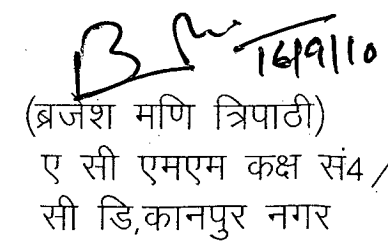 16/9/10
(ब्रजेश मणि त्रिपाठी)
ए सी एमएम कक्ष सं4/
सी डि,कानपुर नगर